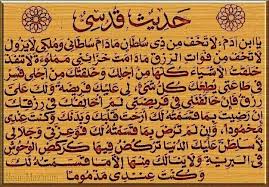 حديث قدسي
يا ابن آدم: لا تخف من ذي سلطان مادام سلطاني وملكي لا يزول
لا تخف من فوات الرزق مادامت خزائني مملوءة لا تنفذ
خلقت الأشياء كلها من أجلك وخلقتك من أجلي فسر
في طاعتي يطعك كل شيء لي عليك فريضة ولك علي
رزق فإن خالفتني في فريضتي لم أخالفك في رزقك
إن رضيت بما قسمته لك أرحت قلبك وبدنك وكنت عندي
محموداً، وإن لم ترض بما قسمته لك فوعزتي وجلالي
لأسلطن عليك الدنيا تركض فيها كركض الوحوش
في البرية ولا ينالك منها إلا ما قسمته لك
وكنت عندي مذموماً